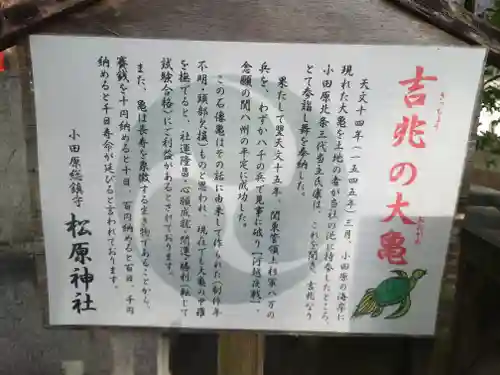 吉兆の大亀
きっちょう
おおがめ
天文十四年(一五四五年)三月、小田原の海岸に
現れた大亀を土地の者が当社の池に持参したところ、
小田原北条三代当主氏康は、これを聞き、吉兆なり
とて参詣し舞を奉納した。
果たして翌天文十五年、関東管領上杉軍八万の
兵を、わずか八千の兵で見事に破り(河越夜戦)、
念願の関八州の平定に成功した。
この石像亀はその話に由来して作られた(制作年
不明・頭部欠損)ものと思われ、現在でも大亀の甲羅
を撫でると、社運隆昌・心願成就・開運・勝利(転じて
試験合格)にご利益があるとされております。
また、亀は長寿を象徴する生き物であることから、
賽銭を十円納めると十日、百円納めると百日、千円
納めると千日寿命が延びると言われております。
小田原総鎮守 松原神社